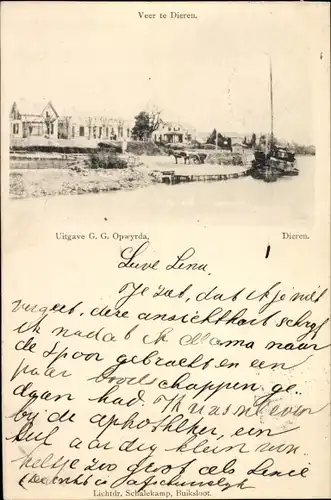 Veer te Dieren.
Uitgave G. G. Opwyrda, Dieren.
Lieve Lenu,
Je zat, dat ik je niet
vergeet, deze ansichtkaart schryf
ik nadat ik Mama naar
de Spoor gebracht en een
paar boodschappen ge-
daan had. Ik was
bij de apotheker, een
aardig klein win-
keltje zoo groot als
Lichtdr. Schalekamp, Buiksloot.